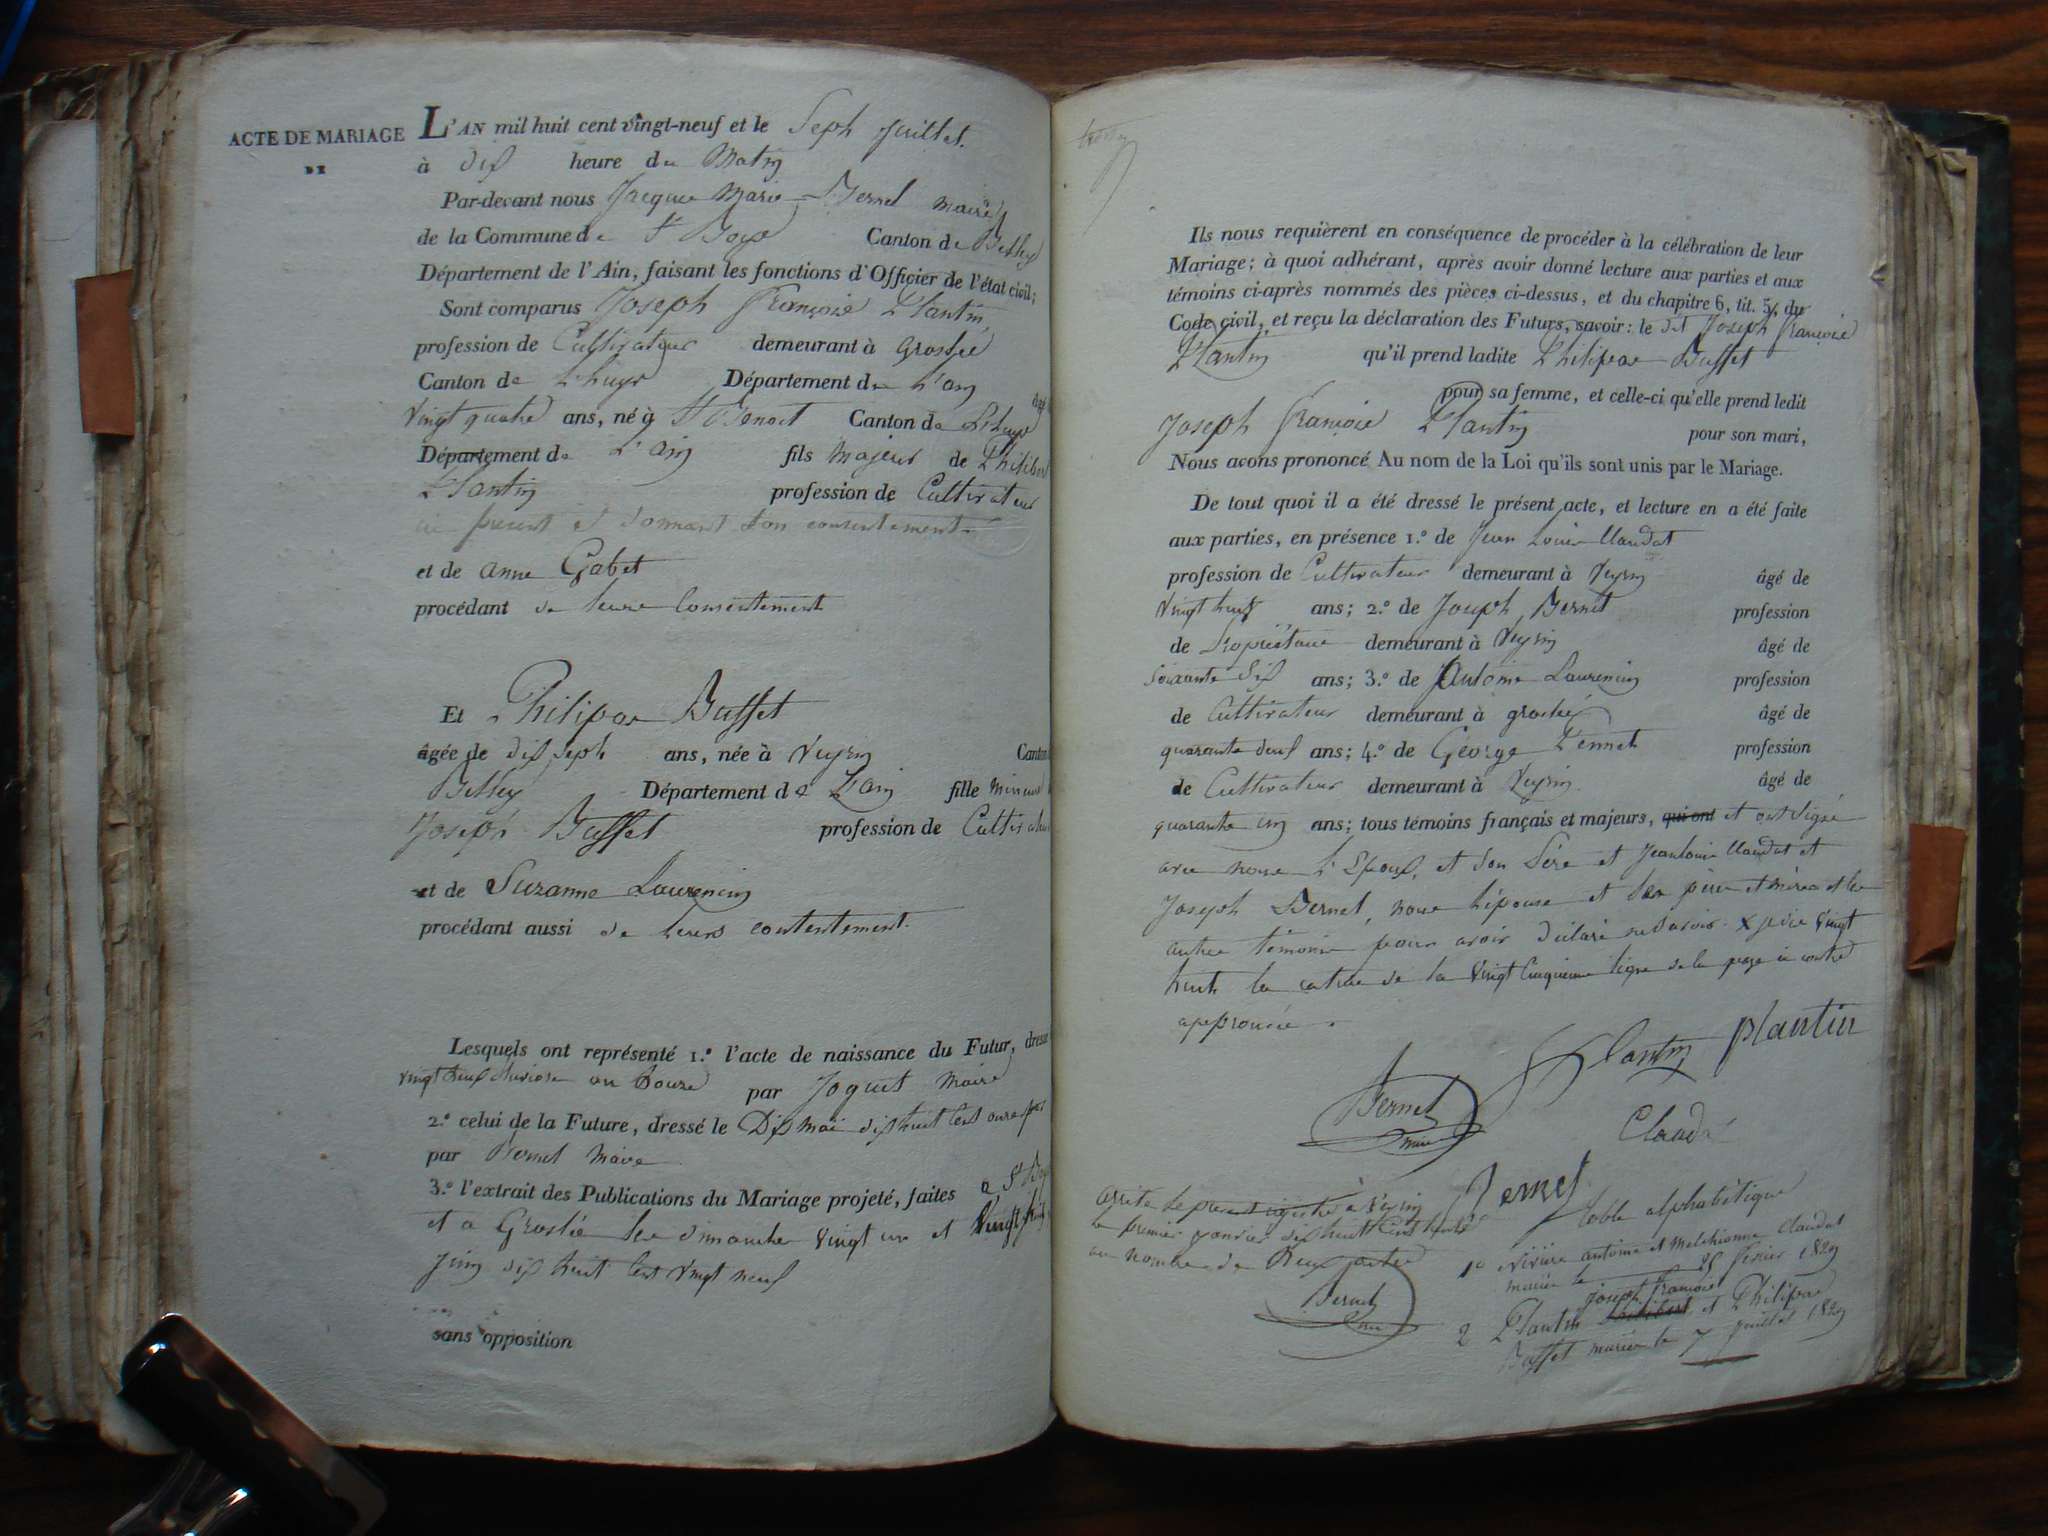 ACTE DE MARIAGE
DE
L'AN mil huit cent vingt-neuf et le Seph juillet.
à dix heure du Matin
Par-devant nous Jacque Marie Bernel maire
de la Commune de St Bois Canton de Belley
Département de l'Ain, faisant les fonctions d'Officier de l'état civil;
Sont comparus Joseph François Plantin
profession de Cultivateur demeurant à Groslée
Canton de Lhuys Département de L'ain âgé
Vingt quatre ans, né à St Benoit Canton de Lhuys
Département de L'ain fils Majeur de Philibert
Plantin profession de Cultivateur
ici present et donnant son consentement
et de anne Gabet
procédant de leure Consentement
Et Philipae Buffet
âgée de dix seph ans, née à Veyrin Canton
Belley Département de L'ain fille mineur
Joseph Buffet profession de Cultivateur
et de Suzanne Laurencin
procédant aussi de leurs contentement.
Lesquels ont représenté 1.º l'acte de naissance du Futur, dressé
par Joguet Maire
2.º celui de la Future, dressé le Dix mai dix huit Cent onze
par Bernel Maire
3.º l'extrait des Publications du Mariage projeté, faites a St Bois
et a Groslée les dimanche vingt un et Vingt huit
Juin dix huit Cent Vingt neuf
sans opposition
Ils nous requièrent en conséquence de procéder à la célébration de leur
Mariage; à quoi adhérant, après avoir donné lecture aux parties et aux
témoins ci-après nommés des pièces ci-dessus, et du chapitre 6, tit. 5, du
Code civil, et reçu la déclaration des Futurs, savoir: le dit Joseph françois
Plantin qu'il prend ladite Philipae Buffet
pour sa femme, et celle-ci qu'elle prend ledit
Joseph François Plantin pour son mari,
Nous avons prononcé Au nom de la Loi qu'ils sont unis par le Mariage.
De tout quoi il a été dressé le présent acte, et lecture en a été faite
aux parties, en présence 1.º de Jean Louis Claudat
profession de Cultivateur demeurant à Veyrin âgé de
Vingt huit ans; 2.º de Joseph Bernet profession
de Propriétaire demeurant à Veyrin âgé de
Soixante dix ans; 3.º de Antoine Laurencin profession
de Cultivateur demeurant à groslée âgé de
quarante deux ans; 4.º de George profession
de Cultivateur demeurant à Veyrin. âgé de
quarante cinq ans; tous témoins français et majeurs, qui ont et ont Signé
avec nous L'Epoux, et Son Père et Jeanlouis Claudat et
Joseph Bernet, nous l'épouse et Ses père et mère et les
autre témoins pour avoir déclaré ne Savoir. Vingt
huit la rature de la Vingt Cinquieme ligne de la page ci contre
approuvée.
Plantin plantin
Bernel
maire
Claudat
Bernet
Arrêté le present registre à Veyrin
le premier janvier dix huit Cent trente
au nombre de Deux actes
Bernel
maire
Table alphabétique
1º Rivière antoine et Melchionne Claudat
mariés le 25 fevrier 1829
joseph françois
2 Plantin Philibert et Philipae
Buffet mariés le 7 juillet 1829